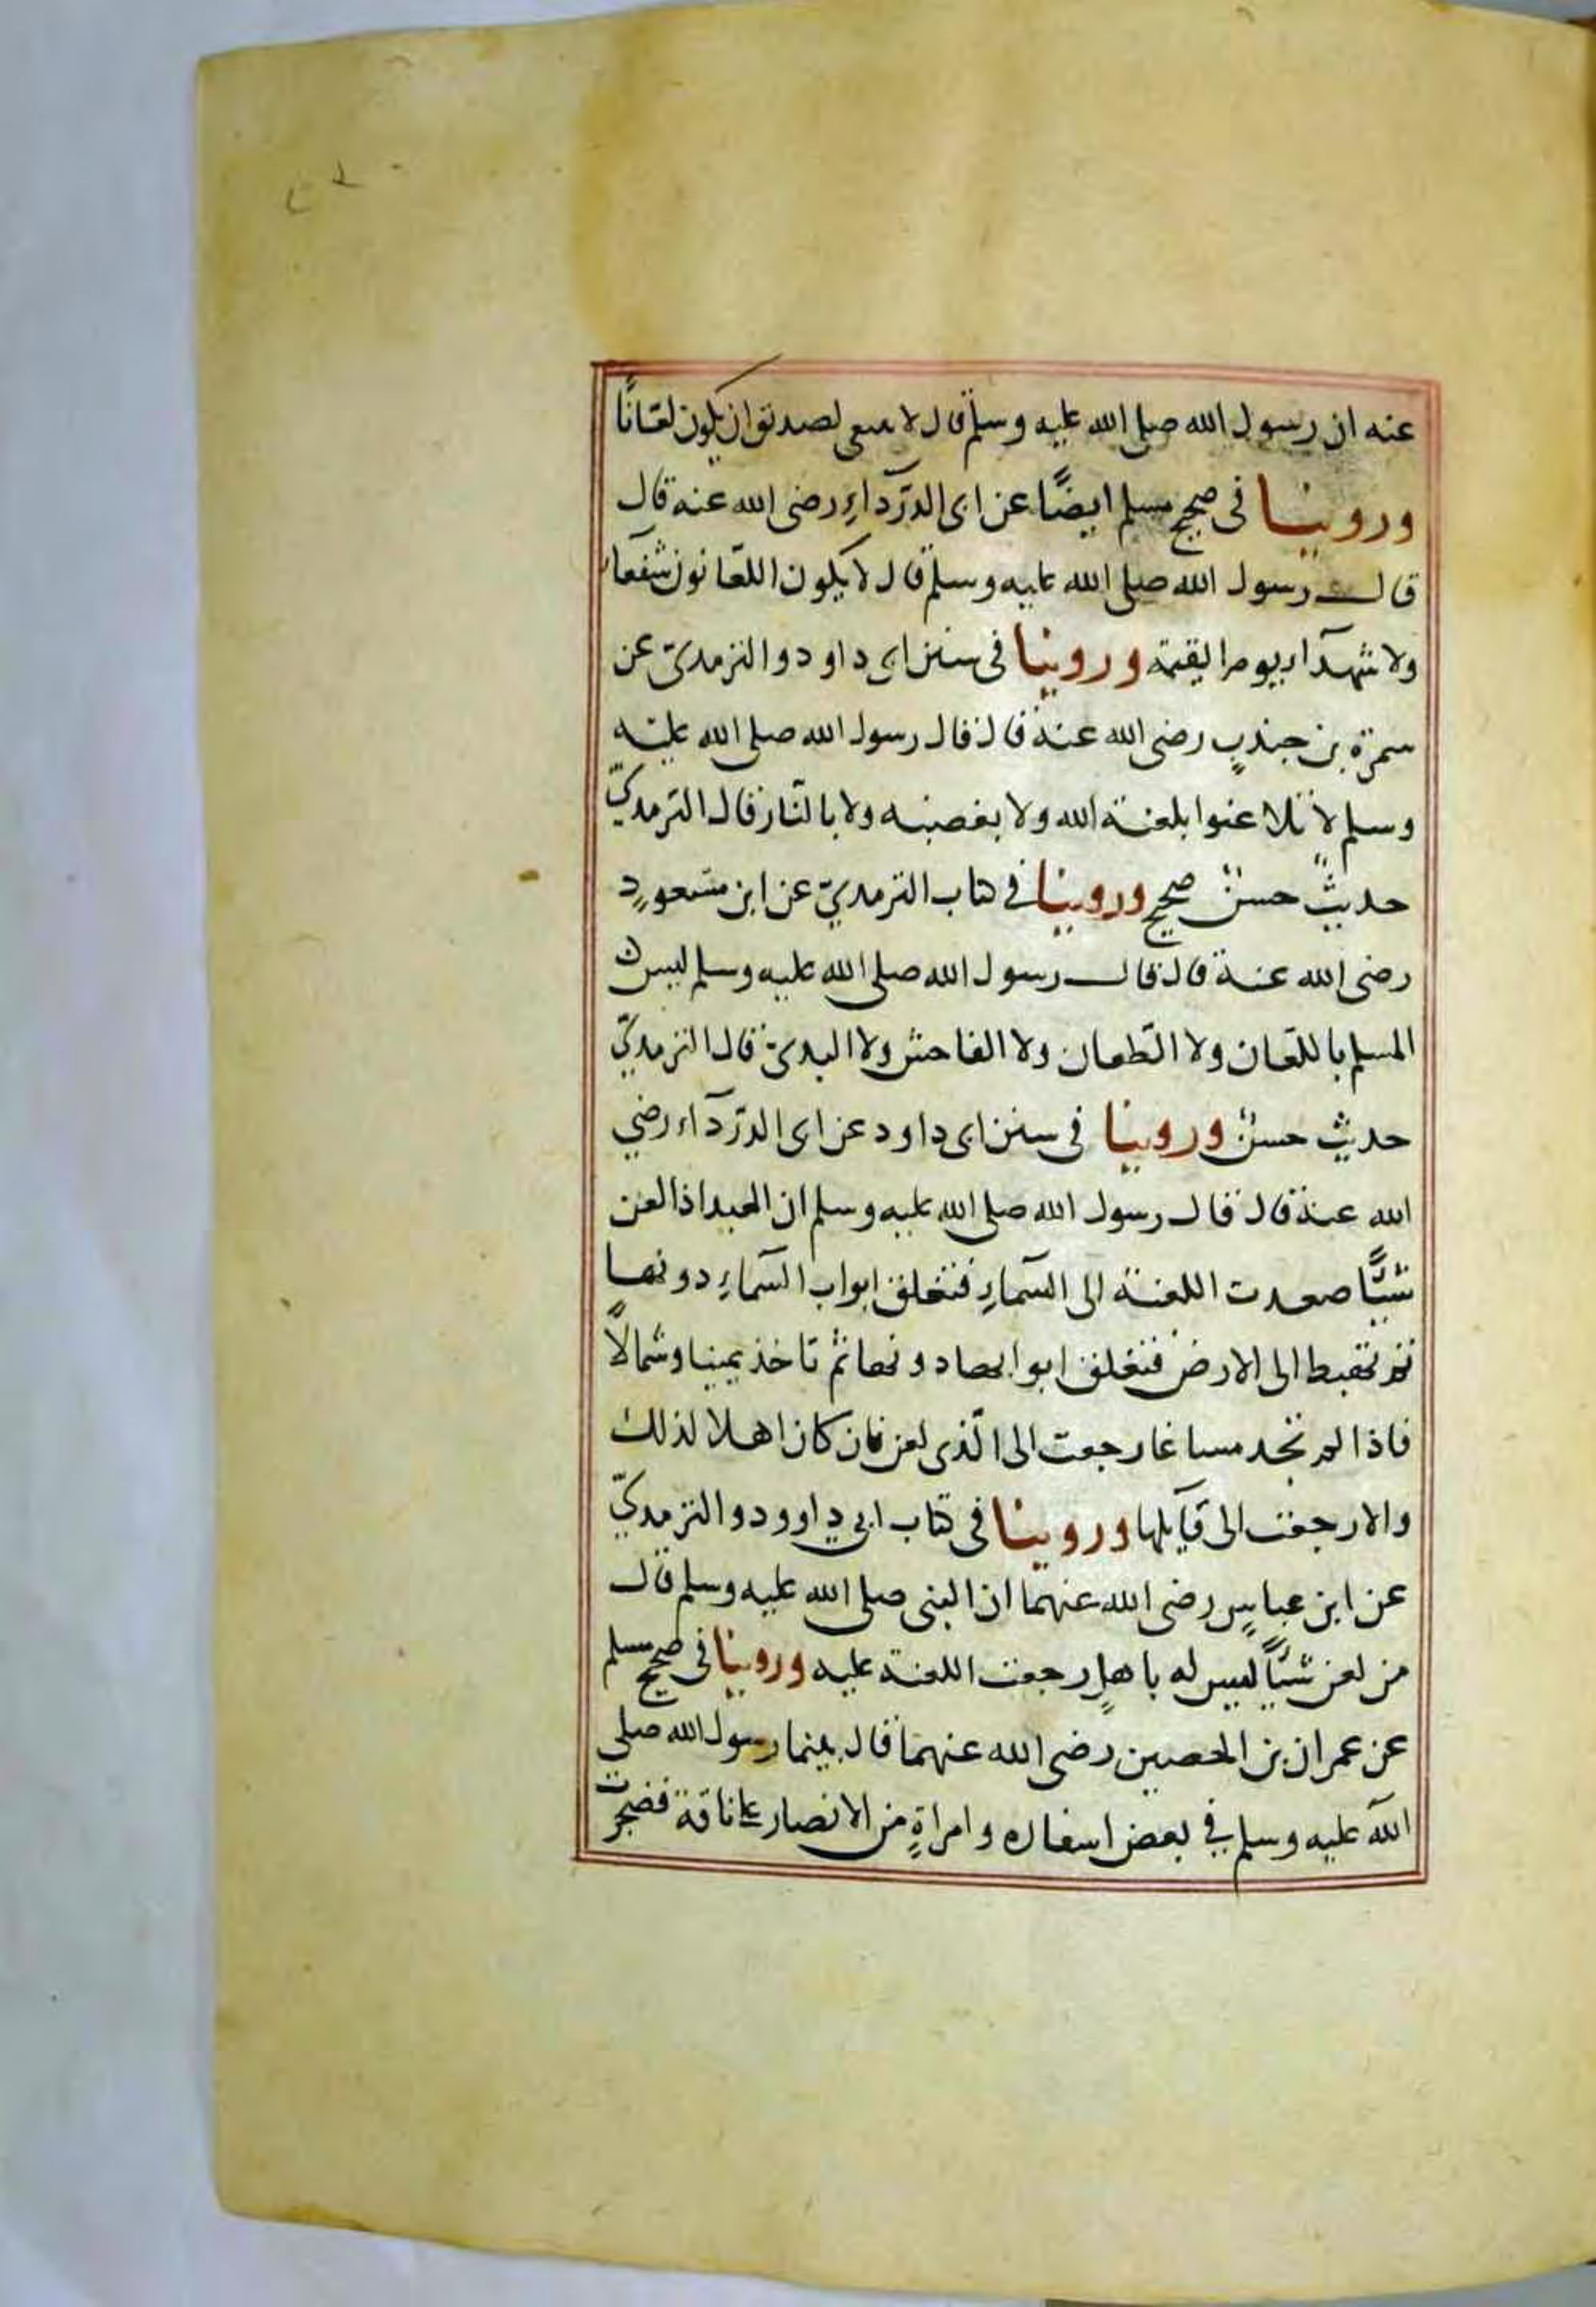 عنه ان رسول الله صلى الله عليه وسلم قال لا ينبغى لصديق ان يكون لعّانًا
وروينا فى صحيح مسلم ايضًا عن ابى الدّرداءِ رضى الله عنه قال
قال رسول الله صلى الله عليه وسلم قال لا يكون اللعّانون شفعاء
ولا شهدآء يوم القيمة وروينا فى سنن ابى داود والترمدىّ عن
سمرة بن جندبٍ رضى الله عنه قال قال رسول الله صلى الله عليه
وسلم لا تلاعنوا بلعنة الله ولا بغضبه ولا بالنّار قال الترمدىّ
حديثٌ حسنٌ صحيح وروينا فى كتاب الترمديّ عن ابن مسعودٍ
رضى الله عنه قال قال رسول الله صلى الله عليه وسلم ليس
المسلم باللعّان ولا الطّعان ولا الفاحش ولا البدىّ قال الترمدىّ
حديث حسنٌ وروينا فى سنن ابى داود عن ابى الدّردآء رضي
الله عنه قال قال رسول الله صلى الله عليه وسلم ان العبد اذا لعن
شيئًا صعدت اللعنة الى السّماءِ فتغلق ابواب السّماءِ دونها
ثم تهبط الى الارض فتغلق ابوابها دونها ثم تاخذ يمينا وشمالًا
فاذا لم تجد مساغا رجعت الى الّذى لعن فان كان اهلا لذلك
والا رجعت الى قآيلها وروينا فى كتاب ابي داوود والترمدىّ
عن ابن عباسٍ رضى الله عنهما ان النبى صلى الله عليه وسلم قال
من لعن شيئًا ليس له باهلٍ رجعت اللعنة عليه وروينا فى صحيح مسلم
عن عمران بن الحصين رضى الله عنهما قال بينما رسول الله صلي
الله عليه وسلم في بعض اسفاره وامراةٍ من الانصار على ناقة فضجرت